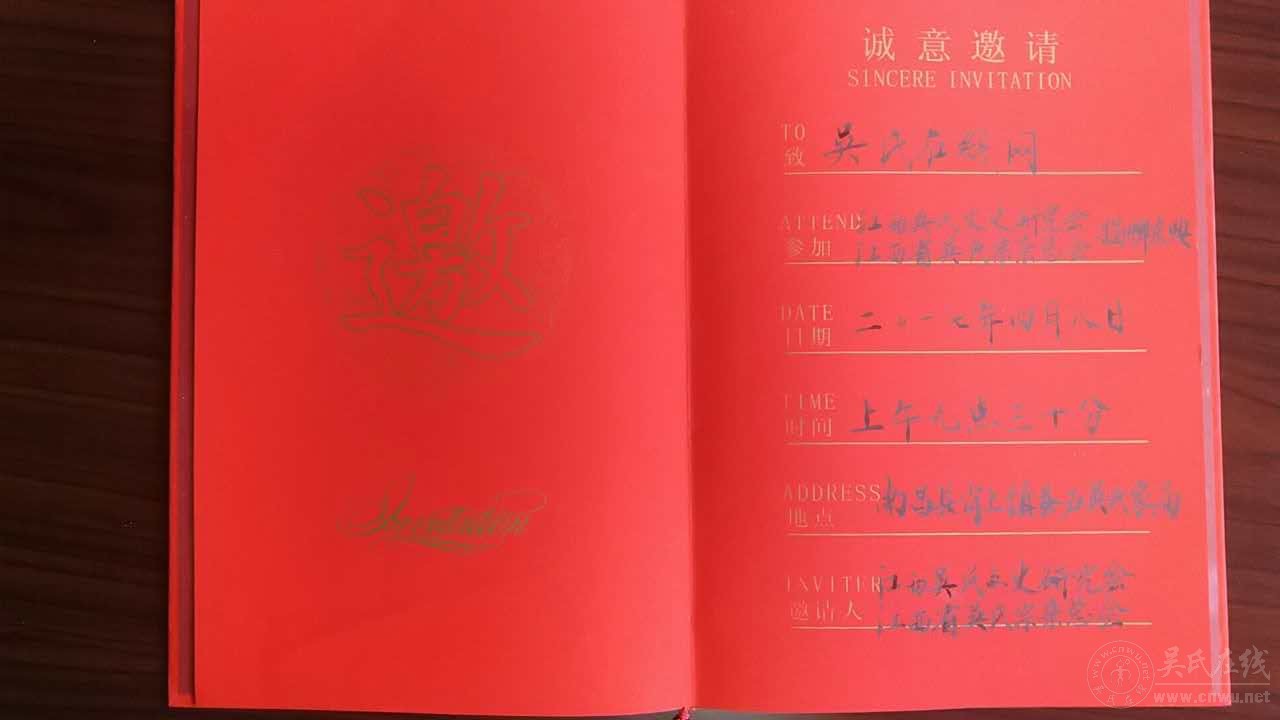 邀
Invitation
诚意邀请
SINCERE INVITATION
TO
致 吴氏在线网
ATTEND 江西吴氏文史研究会
参加 江西省吴氏宗亲总会 揭牌庆典
DATE
日期 二〇一七年四月八日
TIME
时间 上午九点三十分
ADDRESS 南昌县 吴氏家庙
地点
INVITER 江西吴氏文史研究会
邀请人 江西省吴氏宗亲总会
吴氏在线
www.cnwu.net